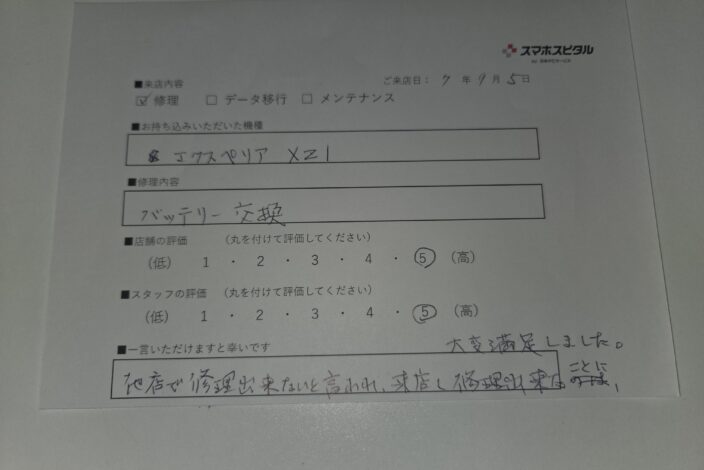 スマホスピタル
■来店内容
ご来店日: 7 年 9 月 5 日
☑ 修理 □ データ移行 □ メンテナンス
■お持ち込みいただいた機種
エクスペリア XZ1
■修理内容
バッテリー交換
■店舗の評価 (丸を付けて評価してください)
(低) 1 ・ 2 ・ 3 ・ 4 ・ 5 (高)
■スタッフの評価 (丸を付けて評価してください)
(低) 1 ・ 2 ・ 3 ・ 4 ・ 5 (高)
■一言いただけますと幸いです
他店で修理出来ないと言われ、来店し修理出来たことに、
大変満足しました。